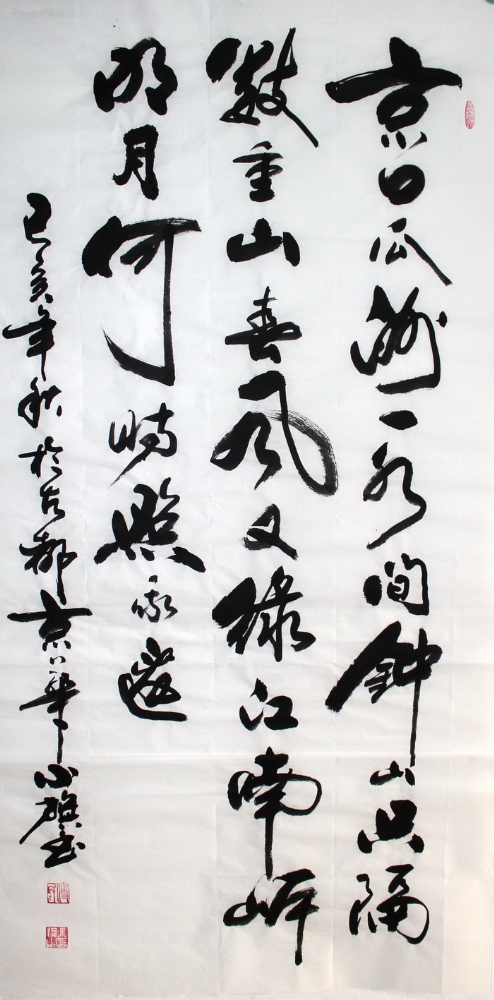 京口瓜洲一水间钟山只隔
数重山春风又绿江南岸
明月何时照我还
己亥年秋於古都京华小雄书